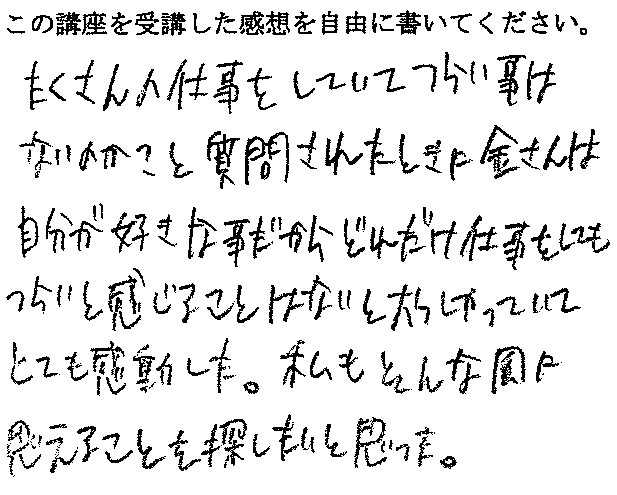 この講座を受講した感想を自由に書いてください。
たくさんの仕事をしていてつらい事は
ないのかこと質問されたときに金さんは
自分が好きな事だからどれだけ仕事をしても
つらいと感じることはないとおっしゃっていて
とても感動した。私もそんな風に
思えることを探したいと思った。